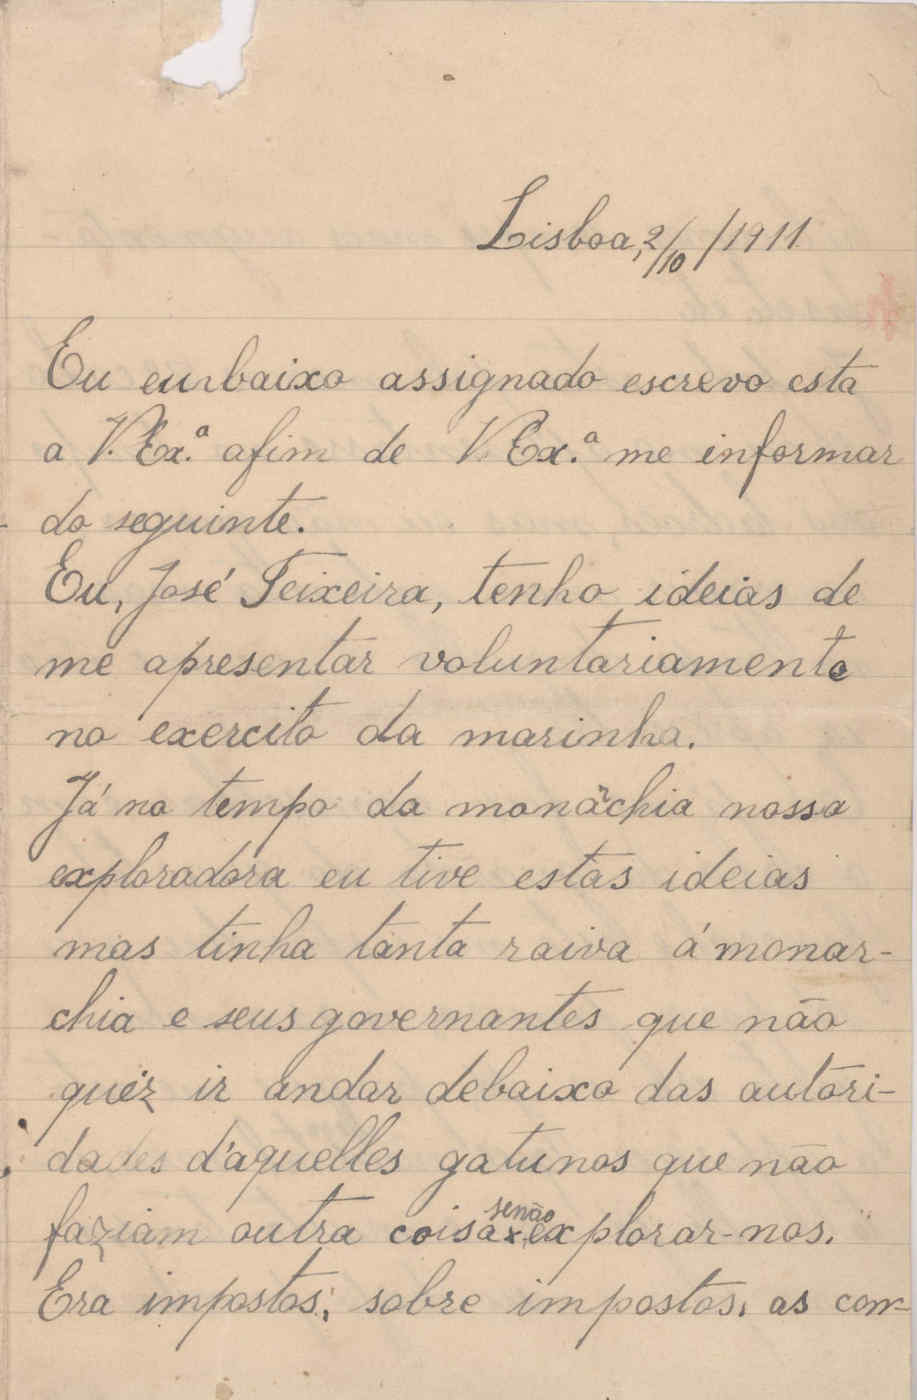 Lisboa, 2/10/1911
Eu embaixo assignado escrevo esta
a V. Ex.ª afim de V. Ex.ª me informar
do seguinte.
Eu, José Teixeira, tenho ideias de
me apresentar voluntariamente
no exercito da marinha.
Já no tempo da monarchia nossa
exploradora eu tive estas ideias
mas tinha tanta raiva á monar-
chia e seus governantes que não
quiz ir andar debaixo das autori-
dades d'aquelles gatunos que não
faziam outra coisa senão explorar-nos.
Era impostos, sobre impostos, as con-